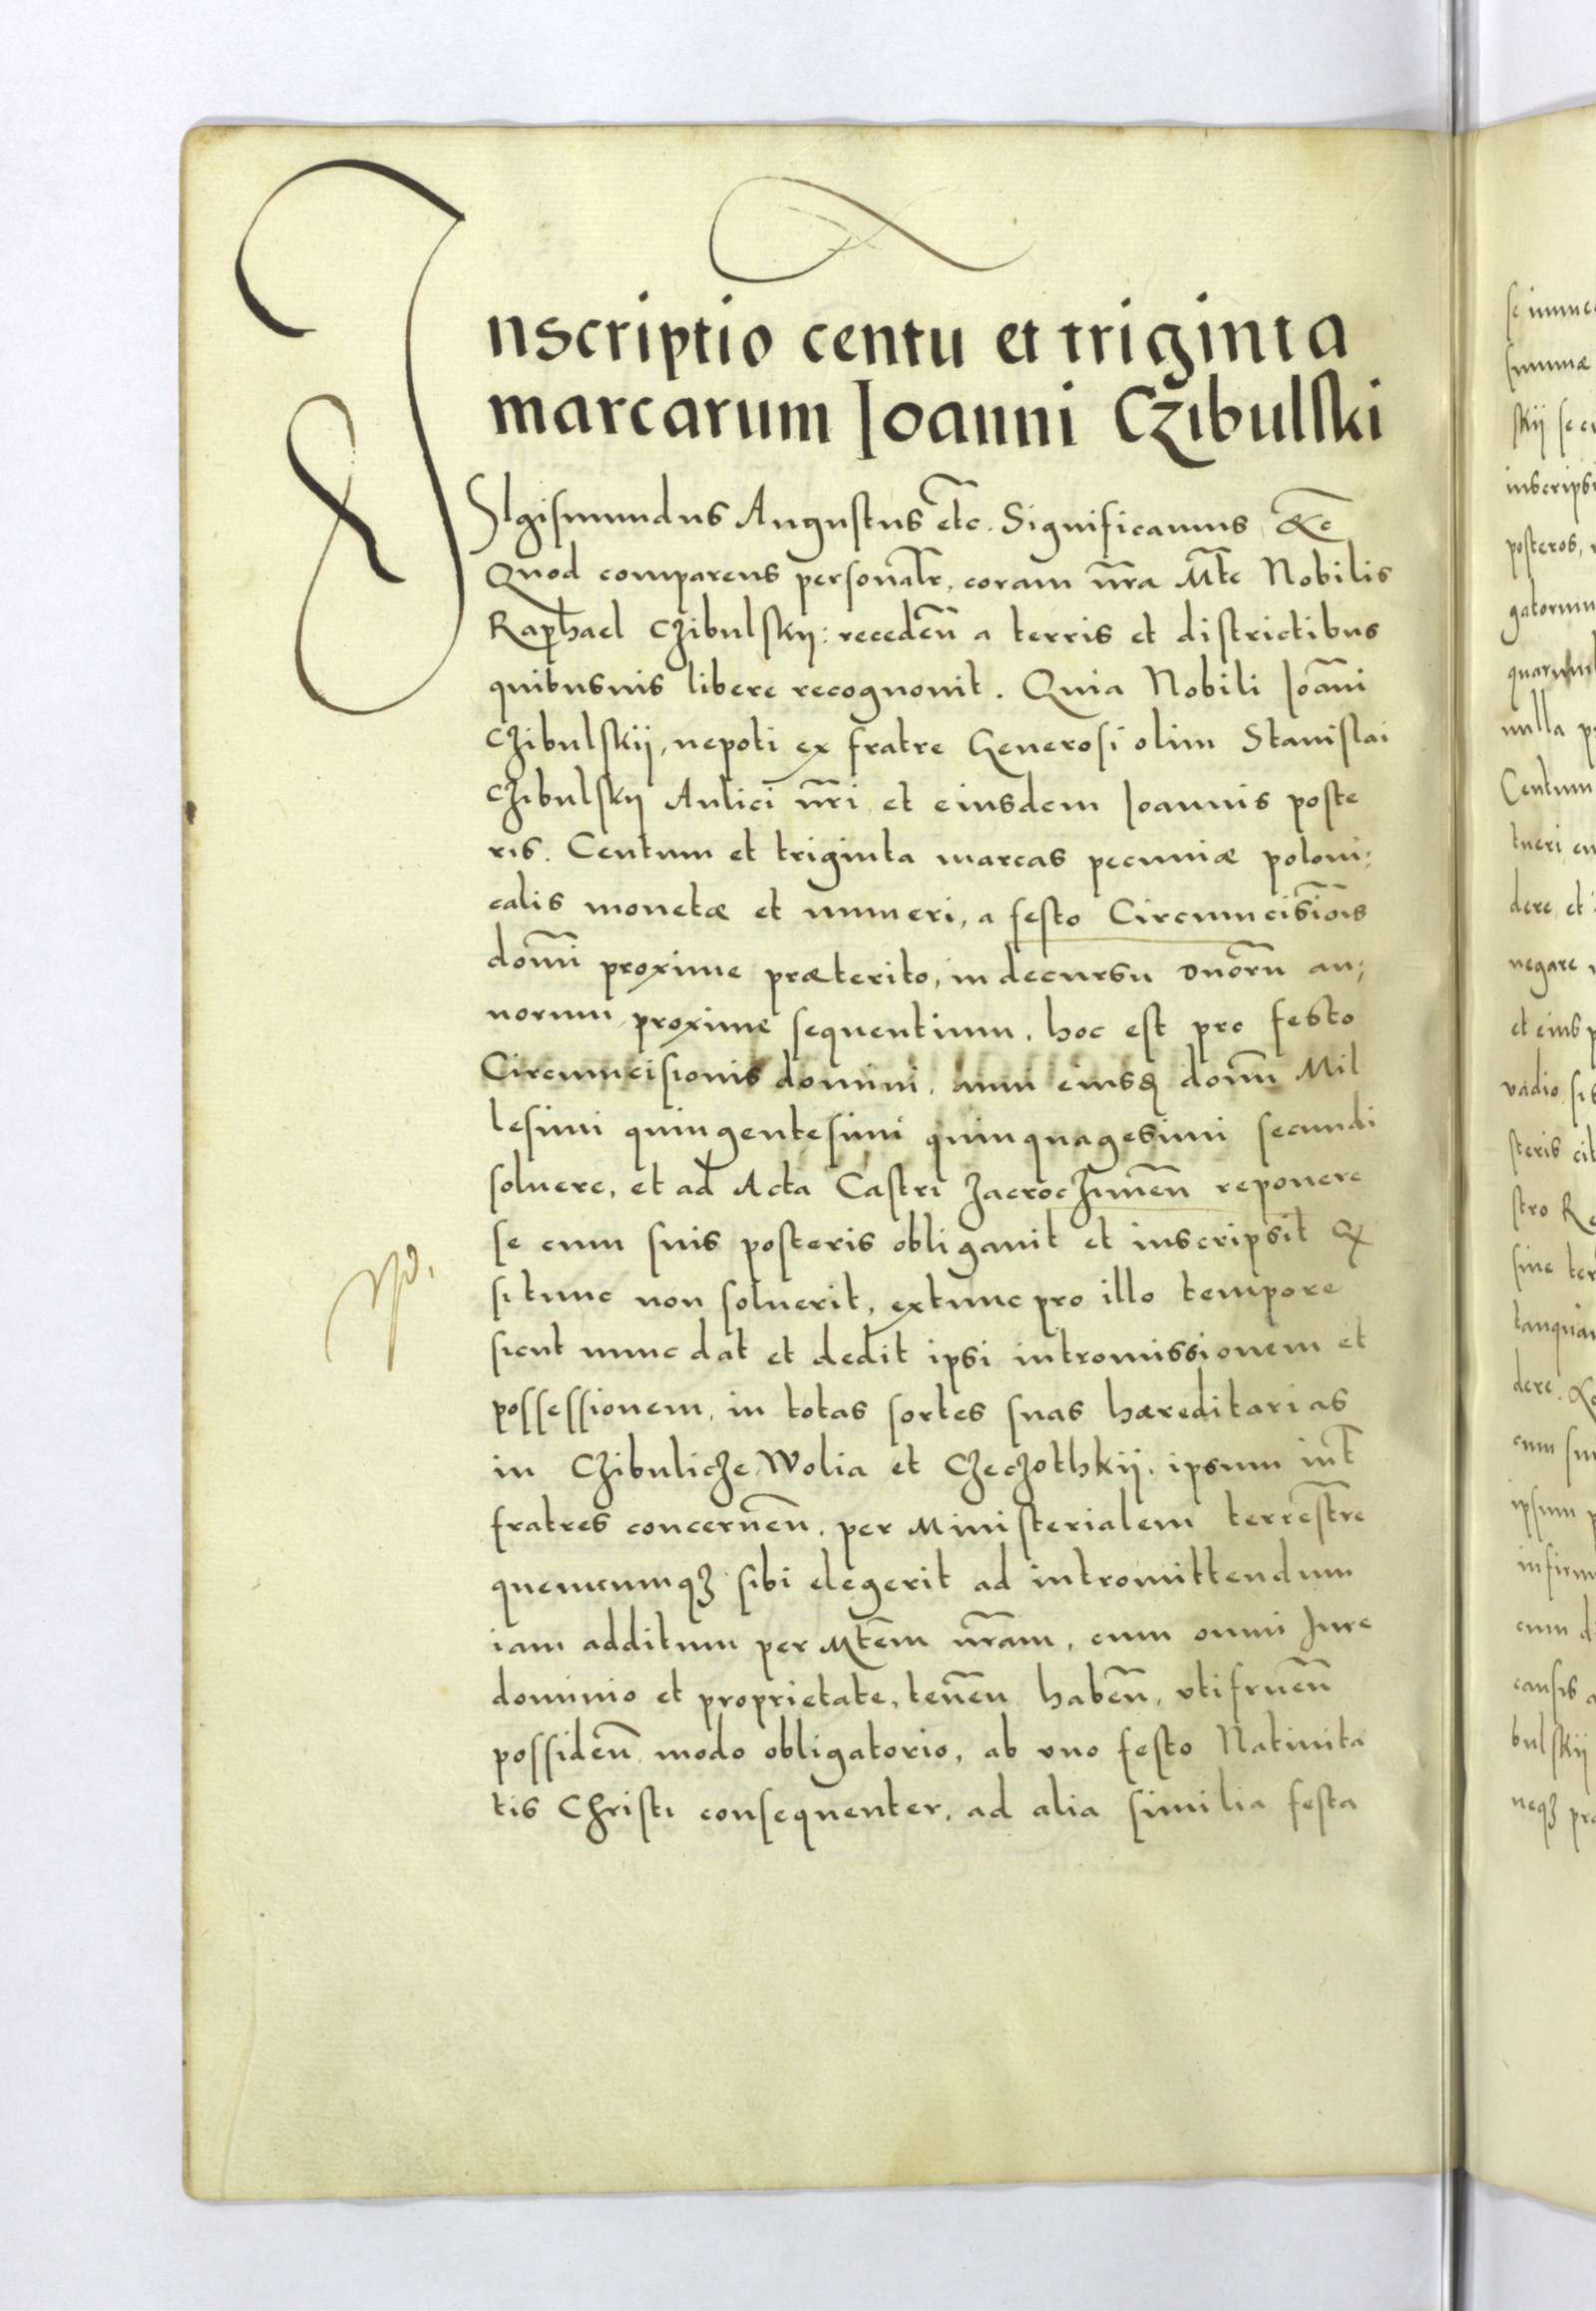 Inscriptio centu et triginta
marcarum Ioanni Czibulski
SIgismundus Augustus etc. Significamus &c
Quod comparens personalr, coram nra Mte Nobilis
Raphael Czibulskij: receden a terris et districtibus
quibusuis libere recognouit. Quia Nobili Ioani
Czibulskij, nepoti ex fratre Generosi olim Stanislai
Czibulskij Aulici nri et eiusdem Ioannis poste
ris. Centum et triginta marcas pecuniæ poloni:
calis monetæ et numeri, a festo Circumcisiois
domi proxime præterito, in decursu duoru an:
norum proxime sequentium, hoc est pro festo
Circumcisionis domini, anni eiusdem domi Mil
lesimi quingentesimi quinquagesimi secundi
soluere, et ad Acta Castri Zacroczimen reponere
se cum suis posteris obligauit et inscripsit Et
si tunc non soluerit, extunc pro illo tempore
sicut nunc dat et dedit ipsi intromissionem et
possessionem, in totas sortes suas hæreditarias
in Czibulicze, Wolia et Czeczothkij, ipsum int
fratres concernen, per Ministerialem terrestre
quemcumq3 sibi elegerit ad intromittendum
iam additum per Mtem nram, cum omni Iure
dominio et proprietate, tenen haben, vtifruen
possiden modo obligatorio, ab vno festo Natiuita
tis Christi consequenter, ad alia similia festa
se
summæ
skij se
inscripsi
posteros,
gatorum
nulla
Centum
tueri
dere et
negare
et eius
vadio
steris
stro
sine
tanquam
dere.
cum
ipsum
cum
causis
bulskij
neq3